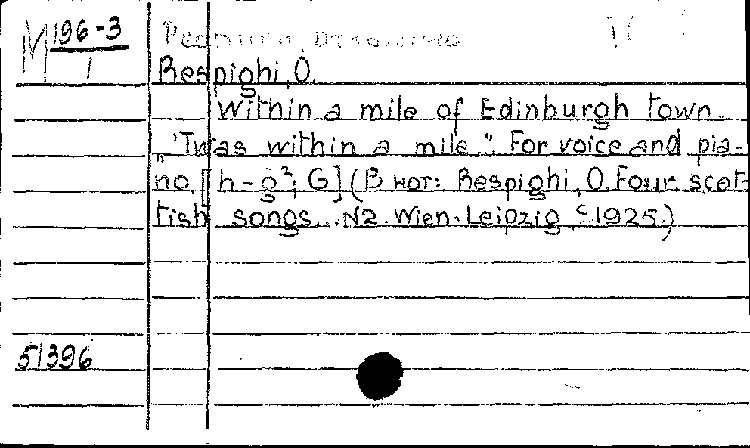 M 196-3
1
Respighi, O.
Within a mile of Edinburgh town.
"'Twas within a mile". For voice and pia-
no. [h-g²; G] (В нот: Respighi, O. Four scot-
tish songs... N2. Wien-Leipzig c 1925.)
51396